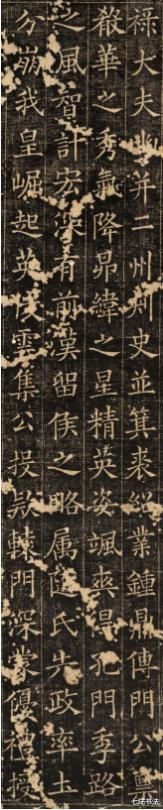 祿大夫幽并二州刾史並箕裘紹業鍾鼎傳門公禀
殽華之秀氣降昴緯之星精英姿颯爽得孔門季路
之風智計宏深有前漢留侯之略属隨氏失政率土
分崩我皇崛起英俊雲集公投款轅門深蒙優禮授